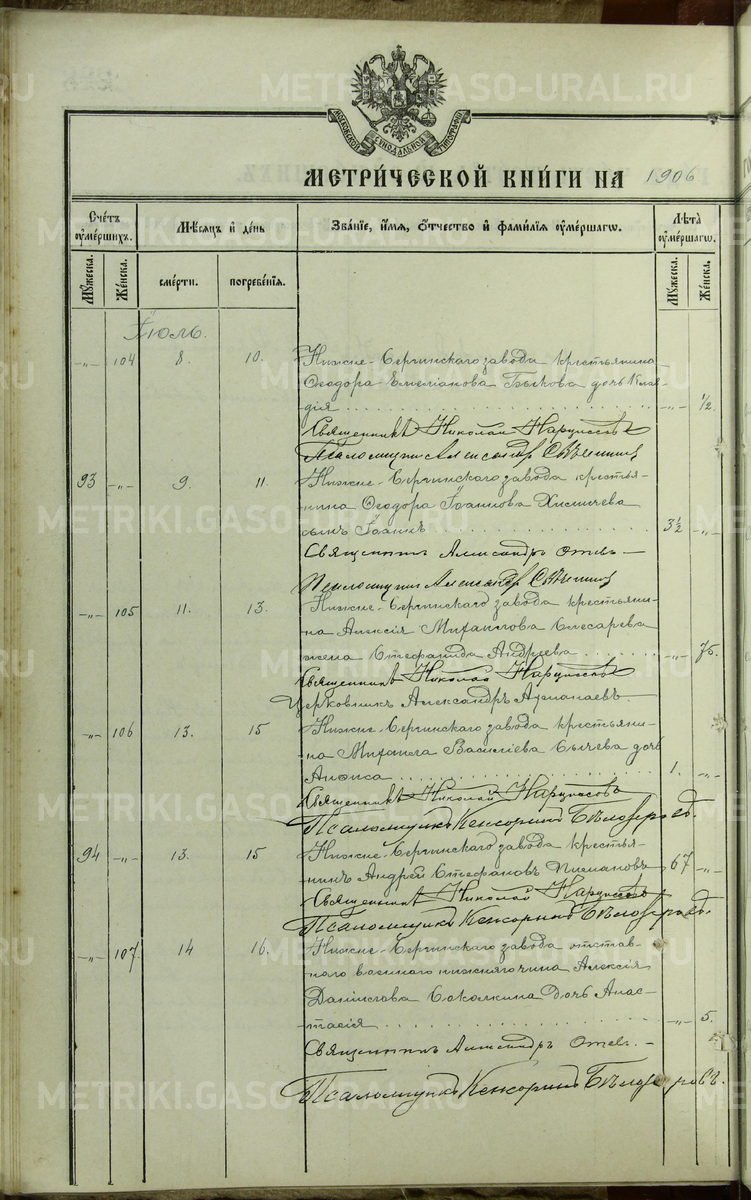 METRIKI.GASO-URAL.RU
МОСКОВСКОЙ СѴНОДАЛЬНОЙ ТИПОГРАФІИ
МЕТРИ́ЧЕСКОЙ КНИ́ГИ НА 1906
Сче́тъ ᲂу҆ме́ршихъ.
Мѣ́сяцъ и҆ де́нь
Зва́нїе, и҆́мѧ, ѻ҆́тчество и҆ фами́лїѧ ᲂу҆ме́ршагѡ.
Лѣ́та ᲂу҆ме́ршагѡ.
Мꙋ́жеска.
Же́нска.
сме́рти.
погребе́нїѧ.
Мꙋ́жеска.
Же́нска.
Іюль.
-„- 104 8. 10. Нижне-Сергинскаго завода крестьянина
Ѳеодора Емеліанова Быкова дочь Клав-
дія -„- ½
Священникъ Николай
Псаломщик Александр
93 -„- 9. 11. Нижне-Сергинскаго завода крестья-
нина Ѳеодора Іоаннова
сынъ Іоаннъ 3½ -„-
Священник Александръ
Псаломщик Александр
-„- 105 11. 13. Нижне-Сергинскаго завода крестьяни-
на Алексія Михаилова Слесарева
жена Стефанида Андреева -„- 75.
Священникъ Николай
Церковникъ Александръ
-„- 106 13. 15 Нижне-Сергинскаго завода крестьяни-
на Михаила Василіева Сычева дочь
Анѳиса 1. -„-
Священникъ Николай
Псаломщикъ Кенсоринъ Бѣлозеровъ.
94 -„- 13. 15 Нижне-Сергинскаго завода крестья-
нинъ Андрей Стефановъ 67 -„-
Священникъ Николай
Псаломщикъ Кенсоринъ Бѣлозеровъ.
-„- 107. 14 16. Нижне-Сергинскаго завода отстав-
ного военнаго нижняго чина Алексія
Даніилова Соколкина дочь Анас-
тасія -„- 5.
Священник Александръ
Псаломщикъ Кенсоринъ Бѣлозеровъ.